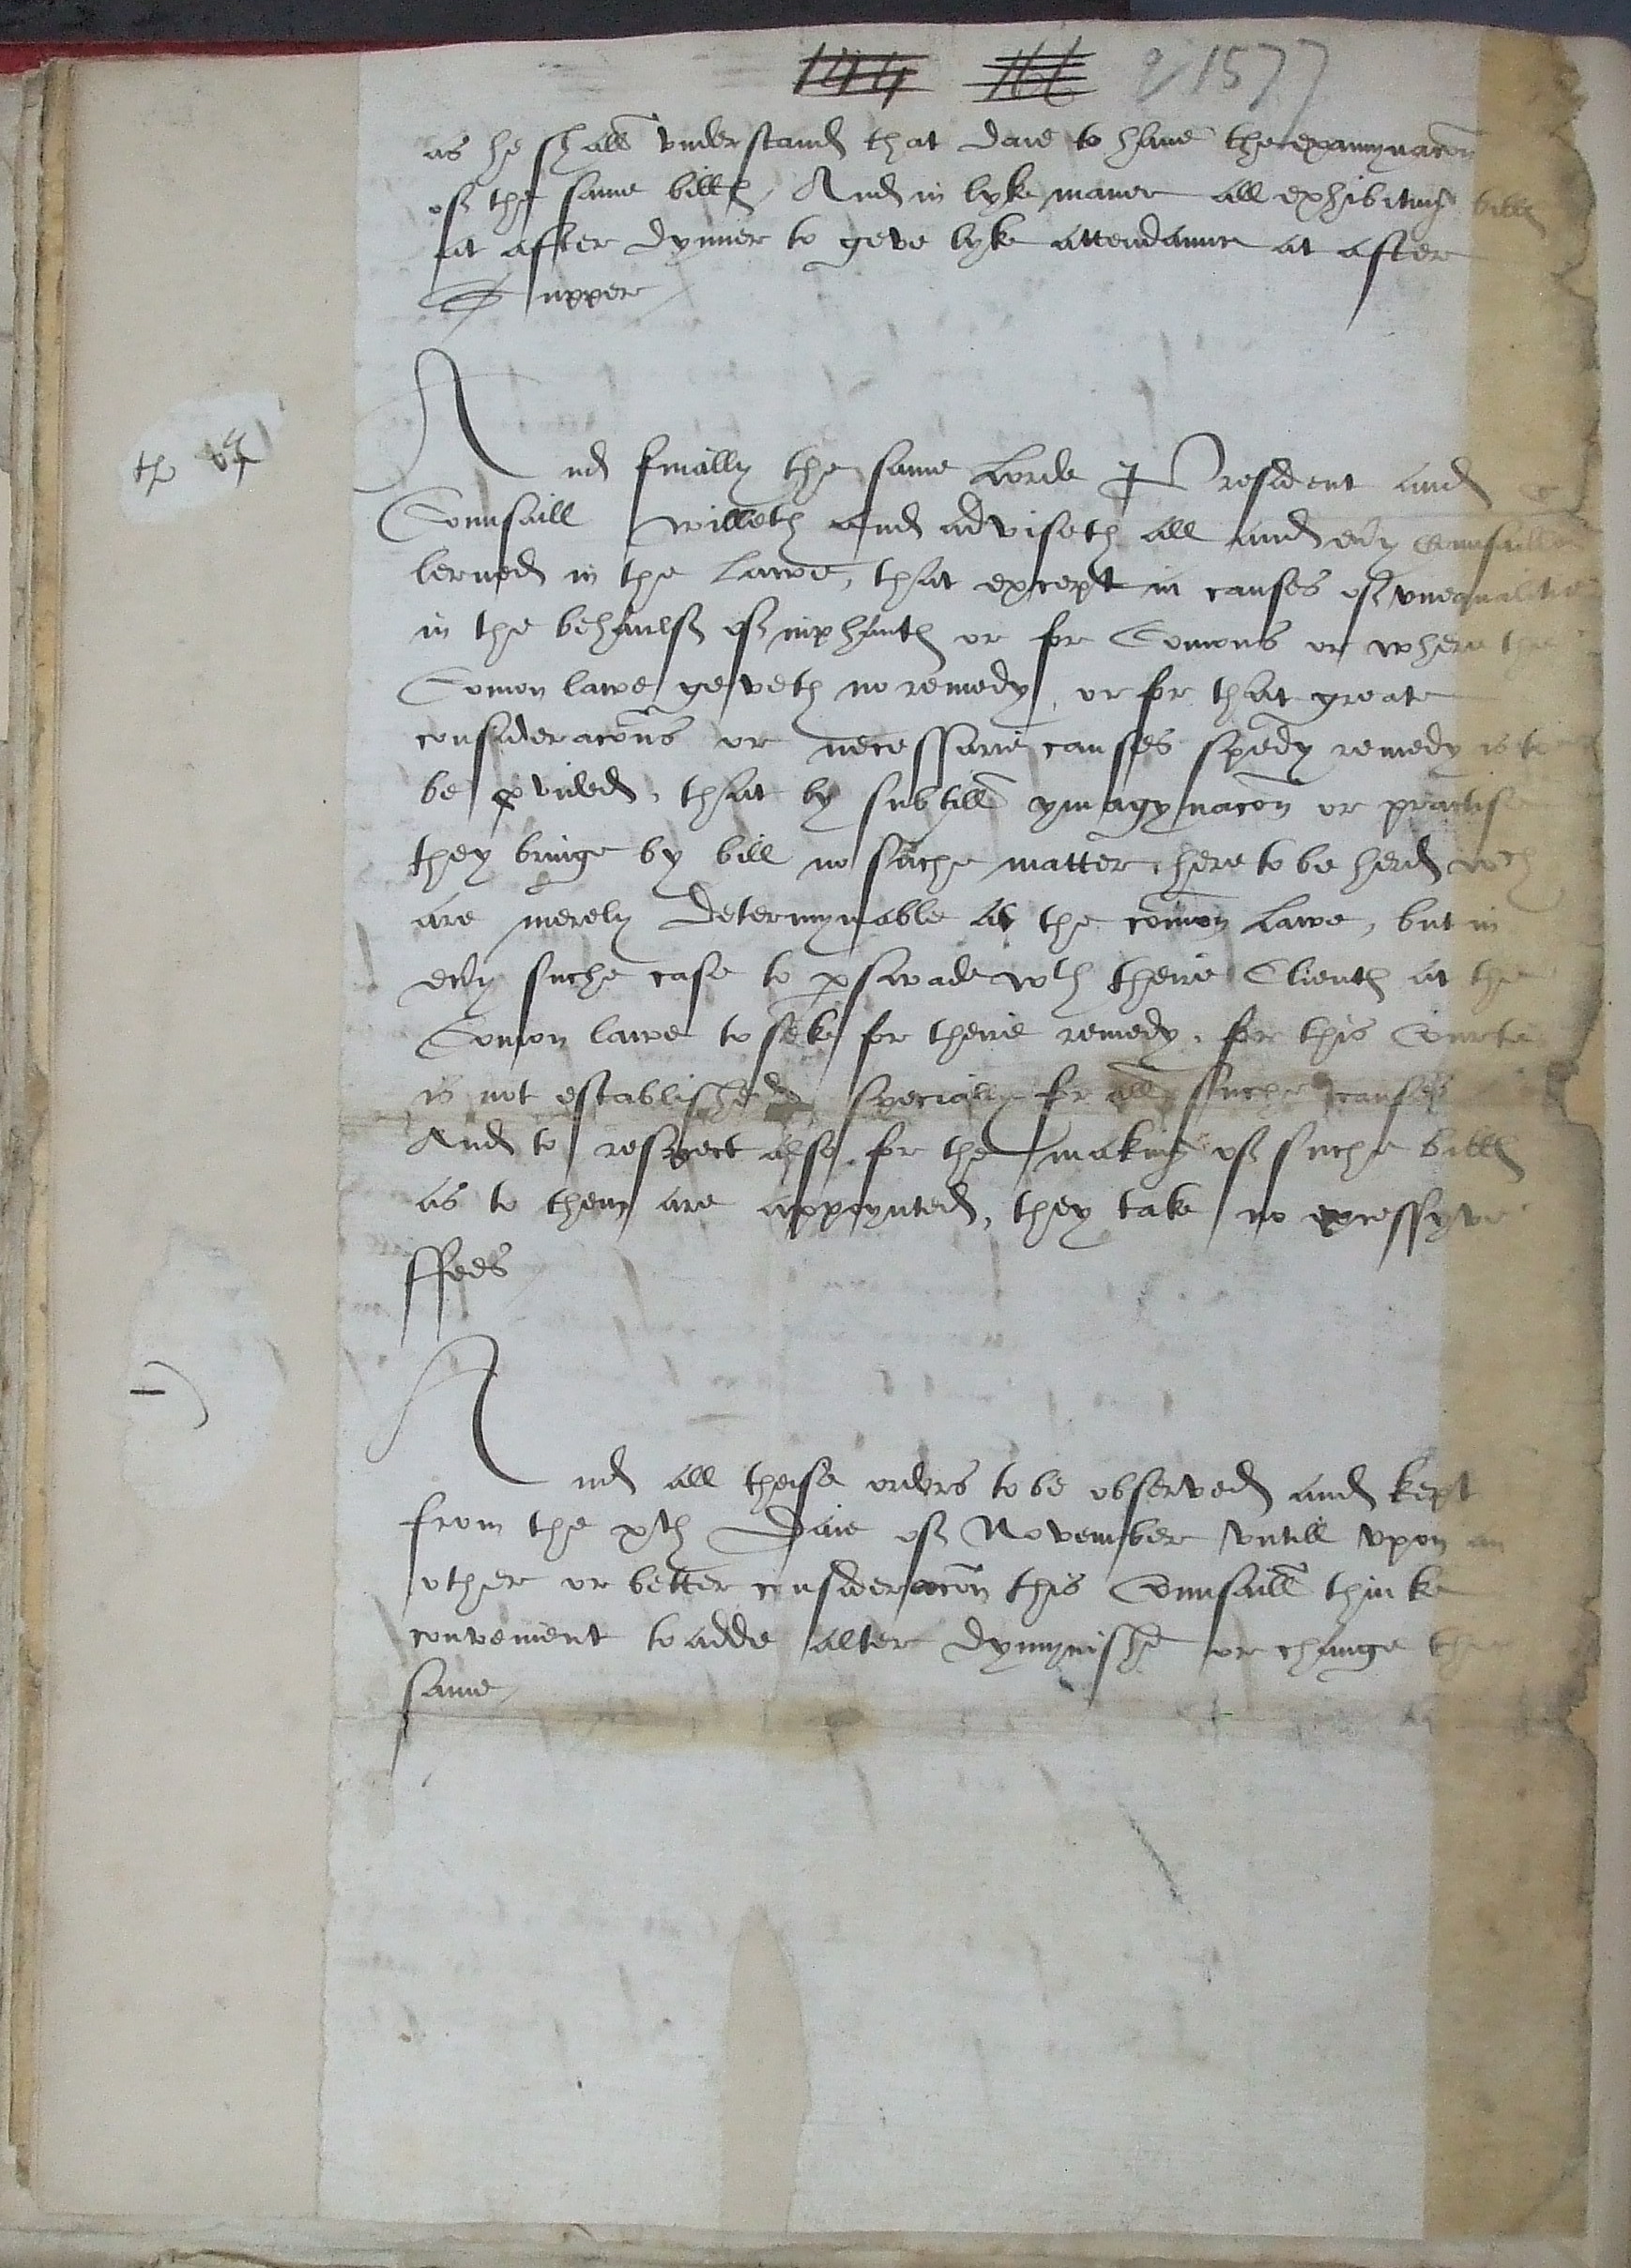 144 166 1577
as he shall vnderstand that daie to haue thexamynacon
of the same billes And in lyke maner all exhibiting billes
at after dynner to geve lyke attendaunce at after
Supper
And finally the same Lorde President and
Counsaill willeth and adviseth all and eu'y Counsailler
lerned in the Lawe, that except in causes of vnequalitie
in the behaulf of inphantes or for Comons or where the
Comon lawe geveth no remedy, or for that greate
consideracons or necessarie causes spedy remedy is to
be pvided, that by subtill ymagynacon or practise
they bringe by bill no suche matter here to be herd wch
are merely determynable at the comon Lawe, but in
eu'y suche case to pswade wth theire Clientes at the
Comon lawe to seke for theire remedy, for this Courte
is not established specially for all suche causes
And to respect also for the making of suche billes
as to them are appoynted, they take no excessyve
ffees
And all theise orders to be observed and kept
from the xth Daie of November vntill vpon an
other or better consideracon this Counsaill thinke
convenient to adde alter dymynishe or change the
same